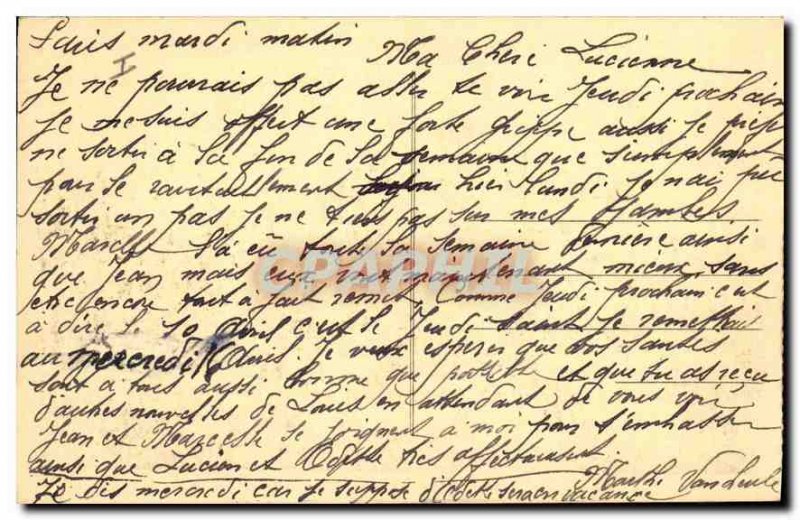 Paris mardi matin
Ma Chere Lucienne
Je ne pourrais pas aller te voir Jeudi prochain
Je me suis offert une forte grippe aussi je
ne sortir à la fin de la semaine que simplement
pour le ravitaillement hier lundi Je n'ai pu
sortir un pas Je ne tiens pas sur mes Jambes
Marcelle l'a eu toute la semaine dernière ainsi
que Jean mais eux vont maintenant mieux sans
être encore tout a fait remit Comme Jeudi prochain c'est
à dire le 10 avril c'est le Jeudi saint Je remettrais
au mercredi Je veux esperer que vos santes
sont a tous aussi bonne que possible et que tu as reçu
d'autres nouvelles de Louis en attendant de vous voir
Jean et Marcelle se joignent a moi pour t'embrasser
ainsi que Lucien et Odette très affectueusement
Marthe
Je dis mercredi car Je suppose Odette sera en vacance
CPAPHIL